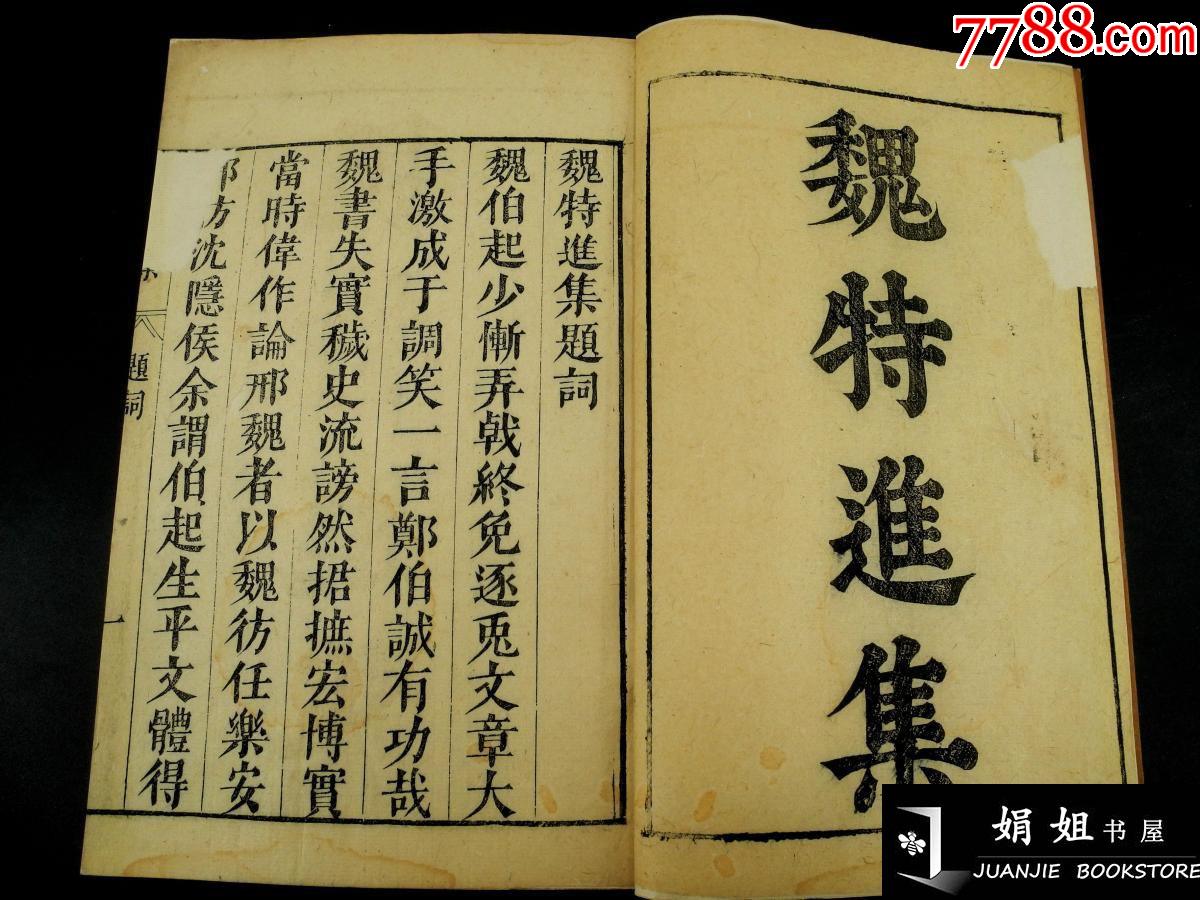 7788.com
魏特進集
魏特進集題詞
魏伯起少慚弄戟終免逐兎文章大
手激成于調笑一言鄭伯誠有功哉
魏書失實穢史流謗然捃摭宏博實
當時偉作論邢魏者以魏彷任樂安
方沈隱侯余謂伯起生平文體得
題詞
一
娟姐书屋
JUANJIE BOOKSTORE